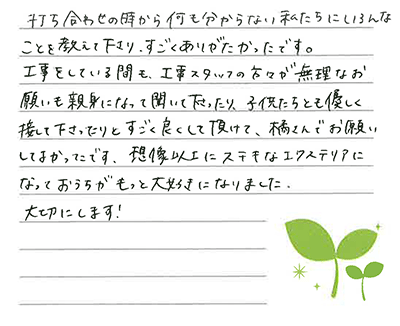 打ち合わせの時から何も分からない私たちにいろんな
ことを教えて下さり、すごくありがたかったです。
工事をしている間も、工事スタッフの方々が無理なお
願いも親身になって聞いて下さったり、子供たちとも優しく
接して下さったりとすごく良くして頂けて、橘さんでお願い
してよかったです、想像以上にステキなエクステリアに
なっておうちがもっと大好きになりました.
大切にします!